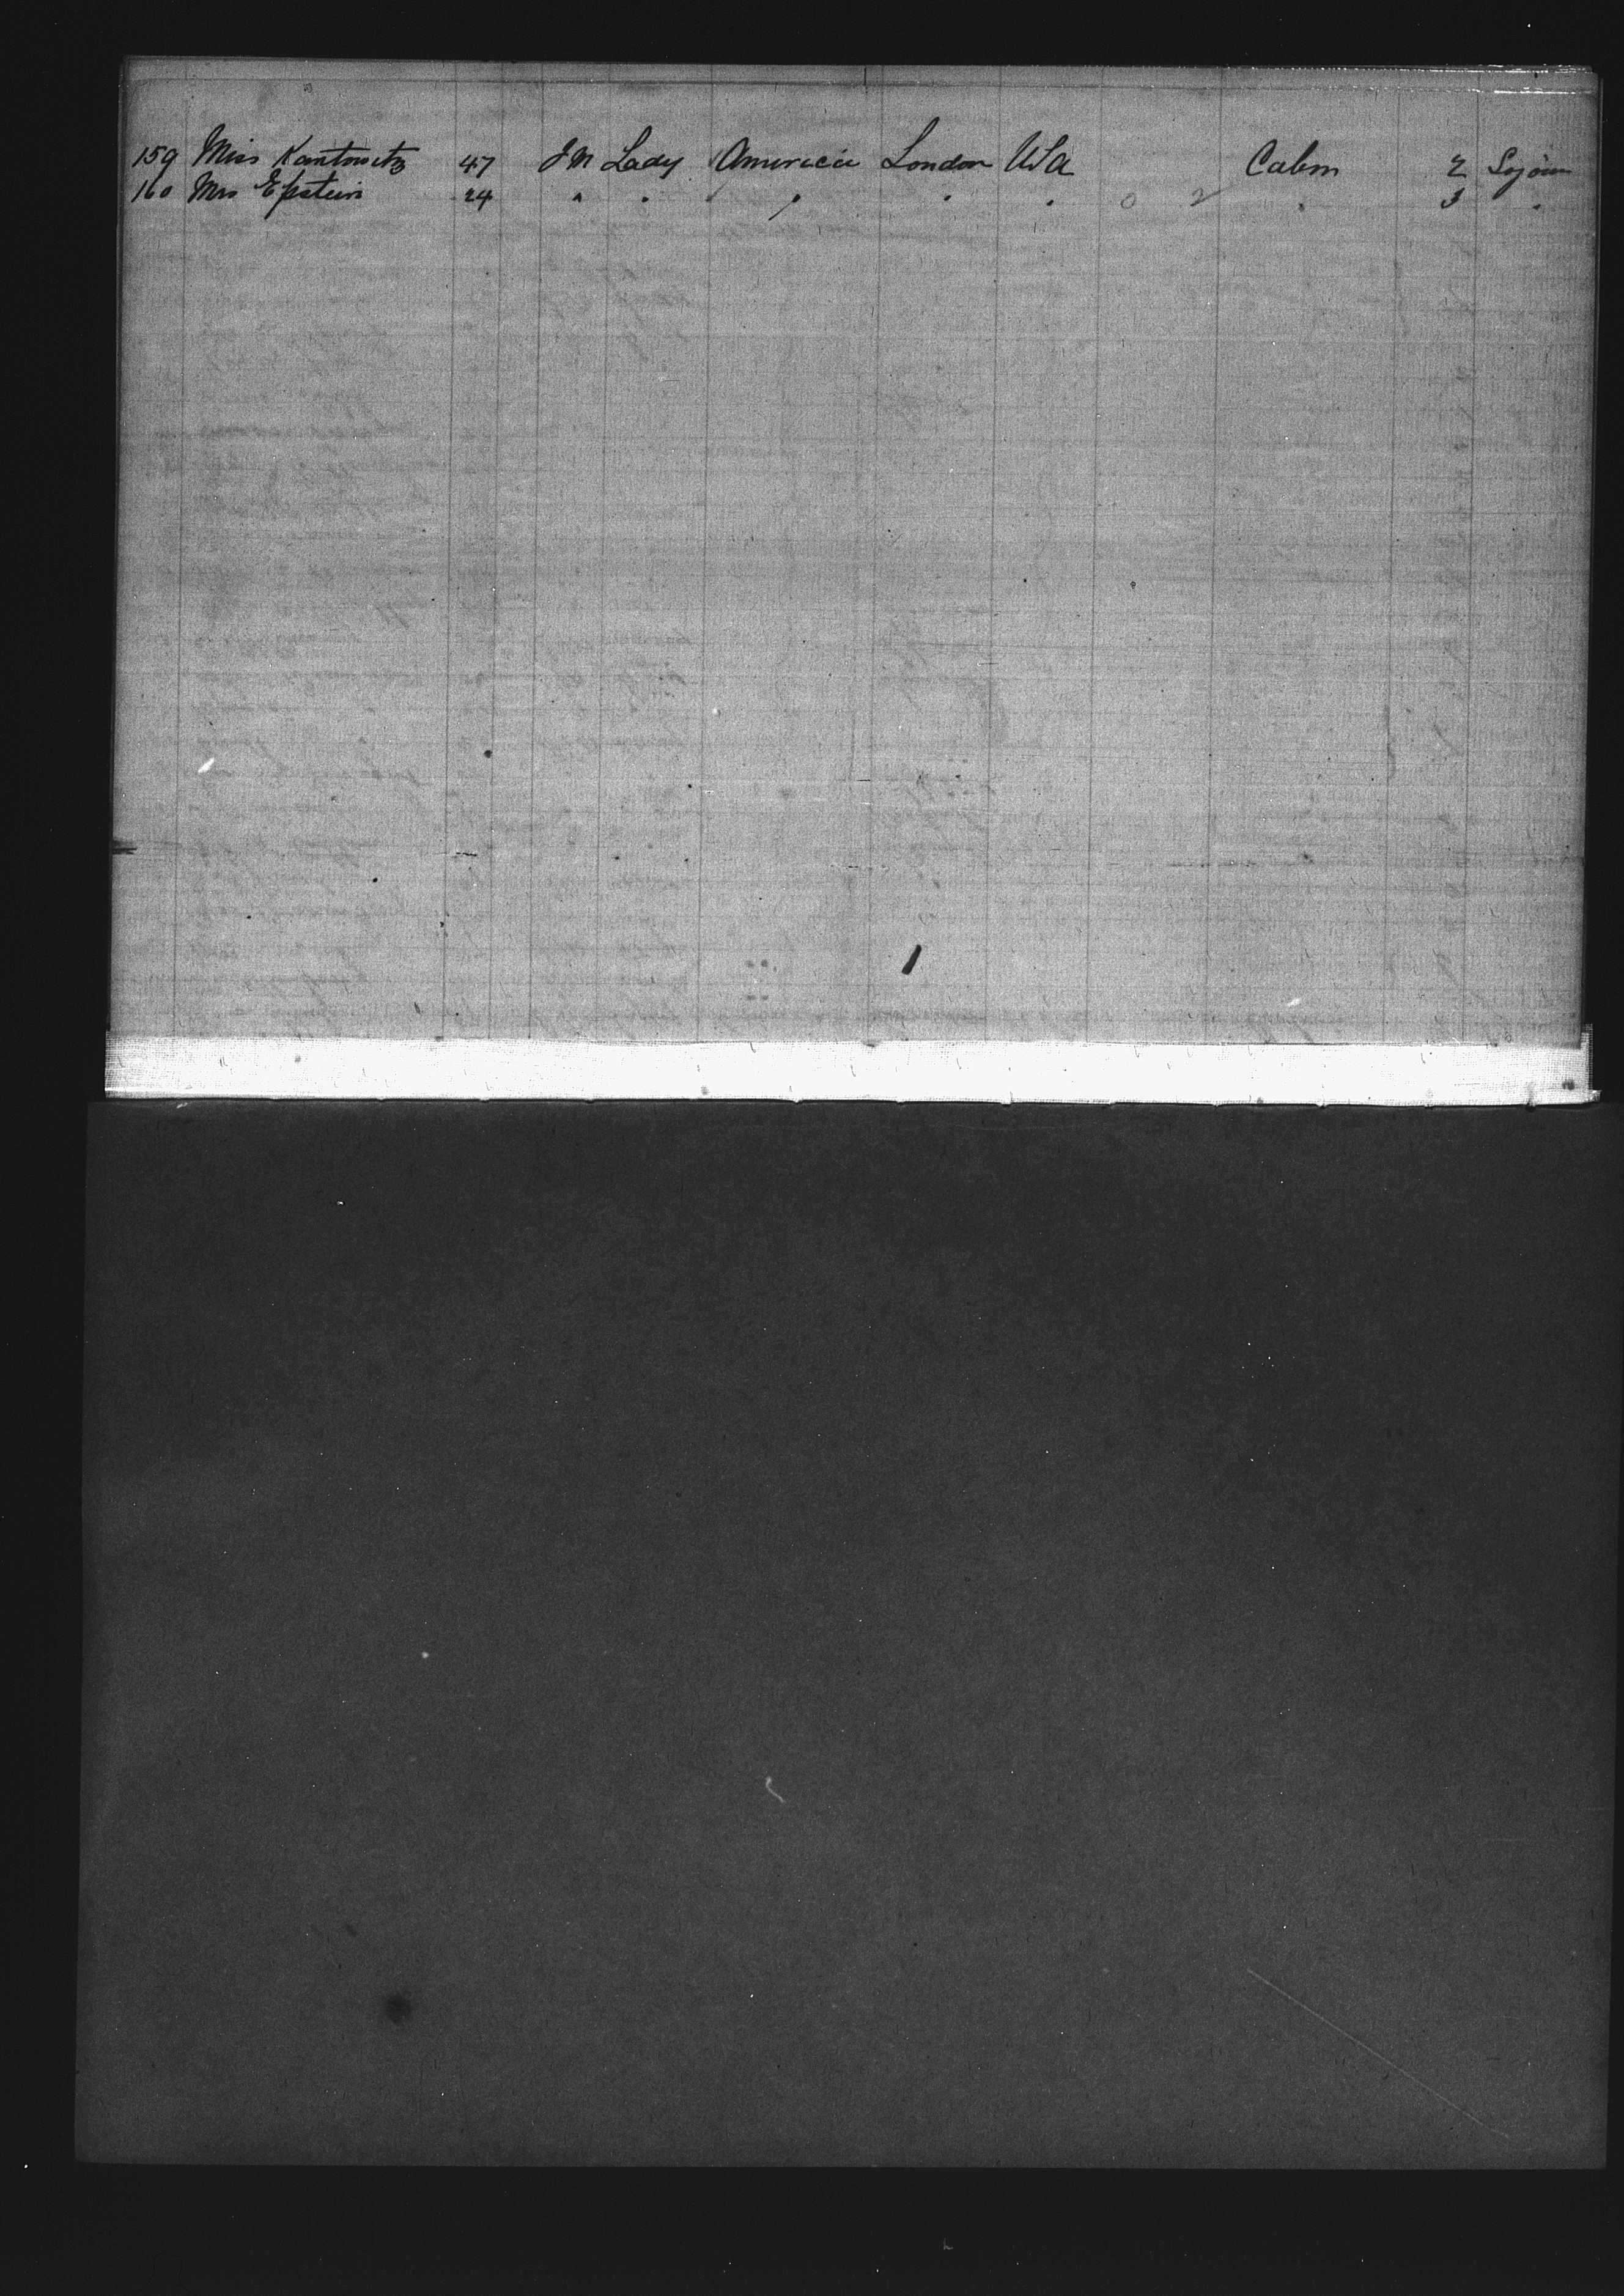 159 Miss Kantowitz 47 Lady America London USA Cabin 2 Sojour
160 Mrs Epstein 24 " " " " " 0 2 " 3 "